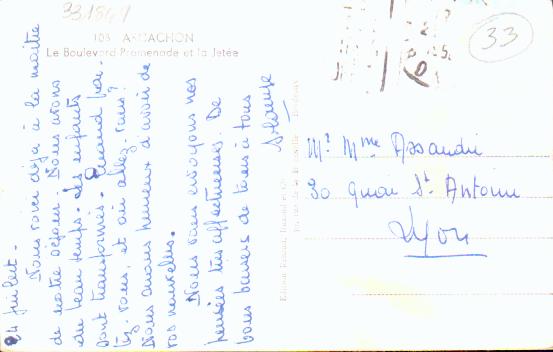 331841
33
103 ARCACHON
Le Boulevard Promenade et la Jetée
24 Juillet -
Nous voici déjà à la moitié
de notre séjour. Nous avons
du beau temps. Les enfants
sont transformés. Quand par-
tez-vous, et où allez-vous?
Nous serions heureux d'avoir de
vos nouvelles.
Nous vous envoyons nos
pensées très affectueuses. De
bons baisers de tous à tous
Mr Mme Assandri
30 Quai St Antoine
Lyon